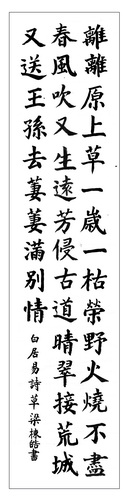 離離原上草一歲一枯榮野火燒不盡
春風吹又生遠芳侵古道晴翠接荒城
又送王孫去萋萋滿別情
白居易詩草梁棟皓書